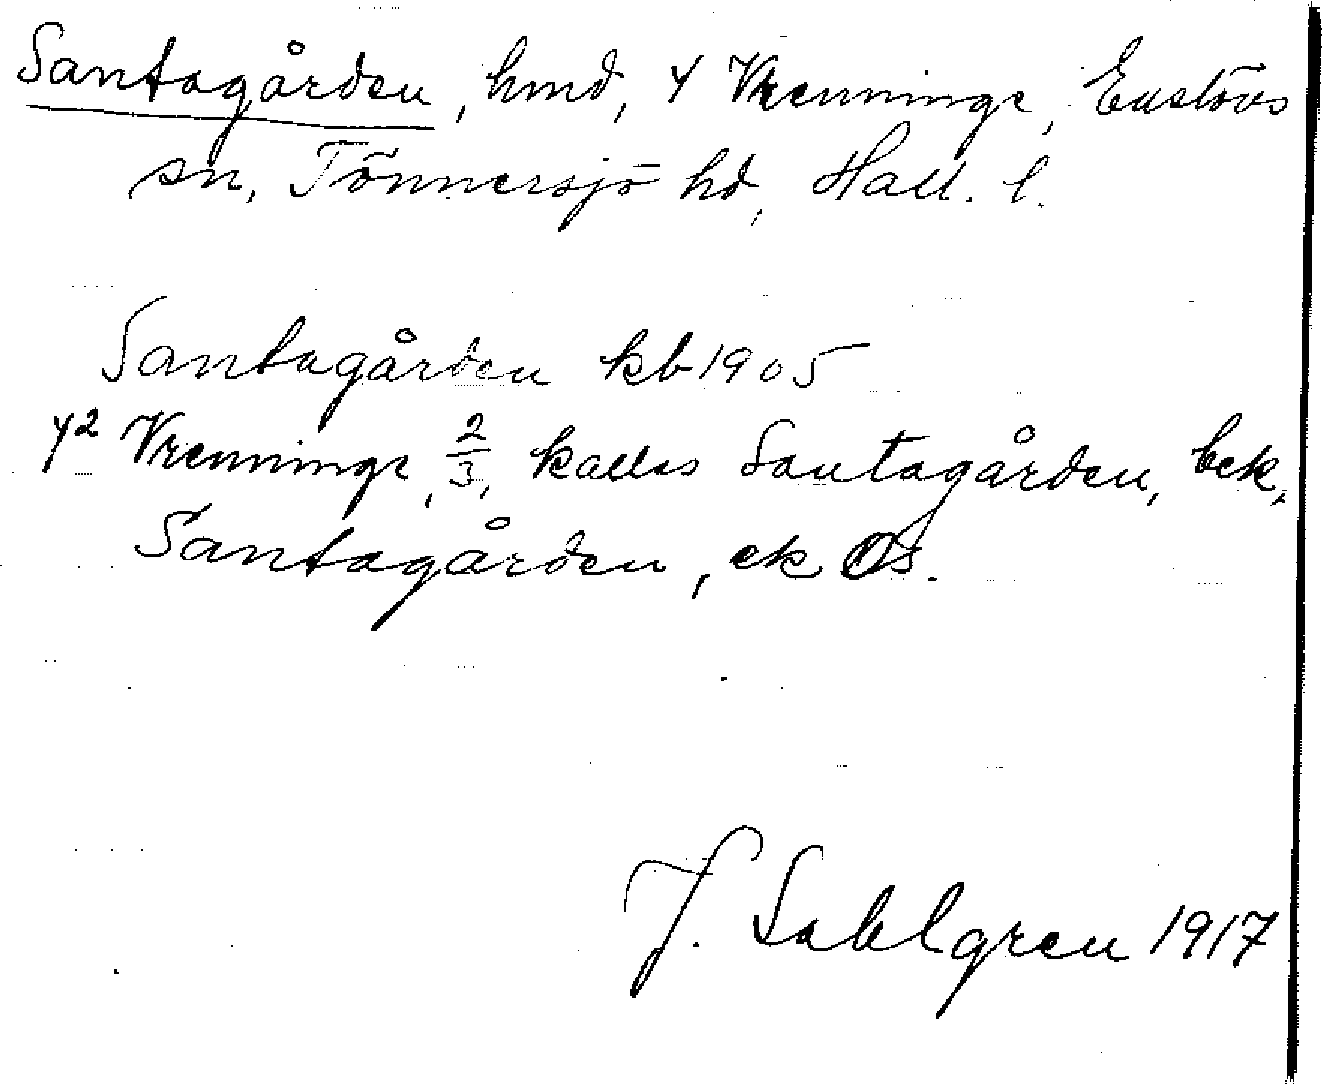 Santagården, hmd, 4 Vrenninge, Enslövs
sn, Tönnersjö hd, Hall. l.
Santagården kb 1905
4² Vrenninge, 2/3, kallas Santagården, bek,
Santagården, ek Os.
J. Sahlgren 1917